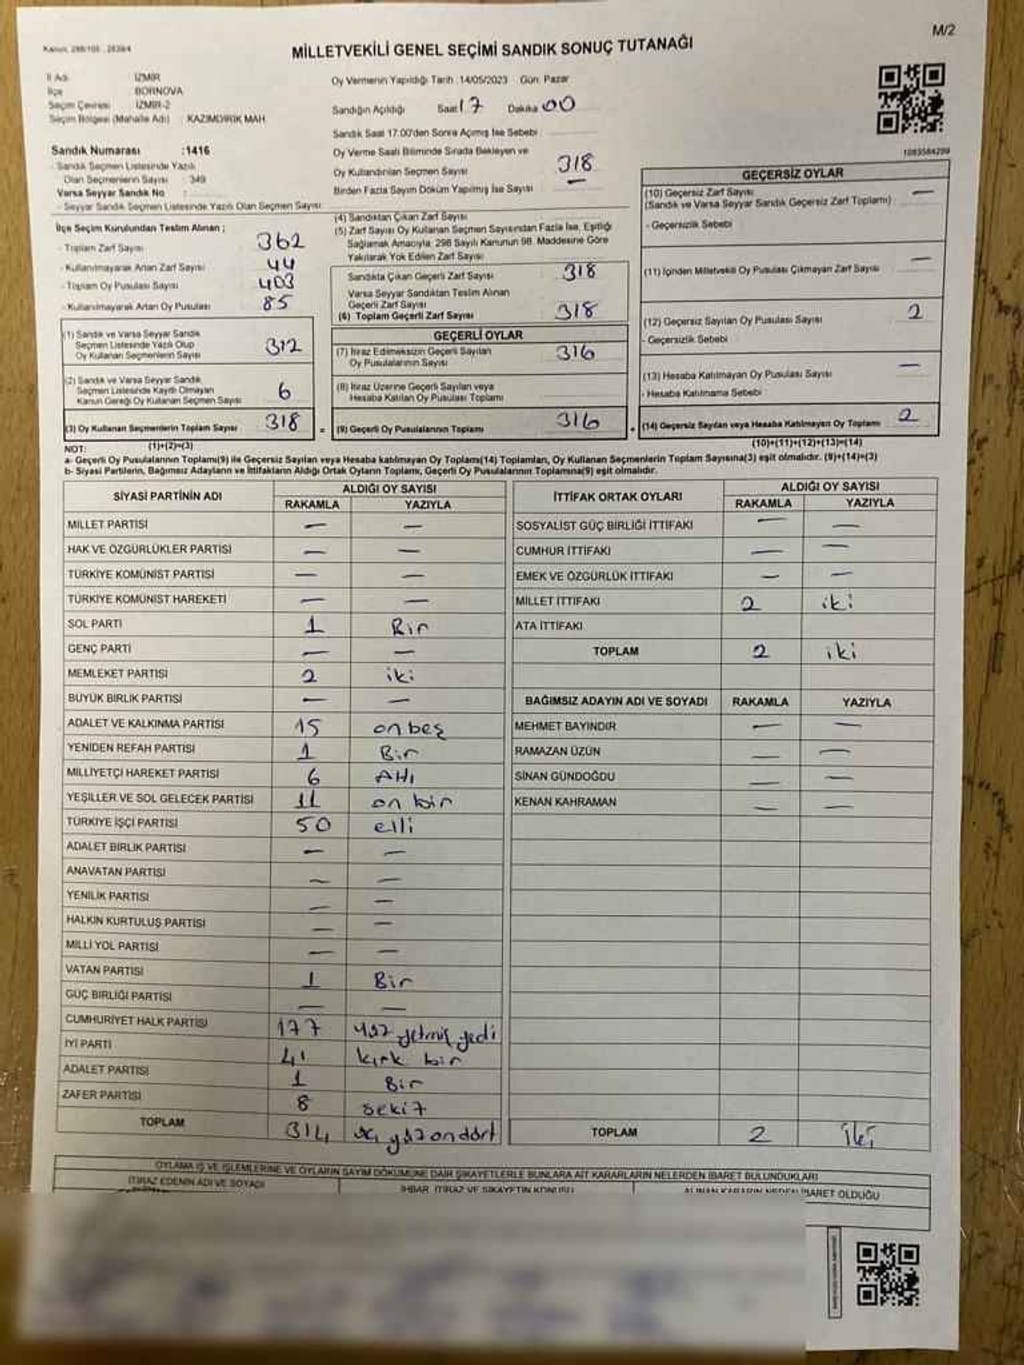 Kanun: 298/105 , 2839/4
M/2
MİLLETVEKİLİ GENEL SEÇİMİ SANDIK SONUÇ TUTANAĞI
İl Adı : İZMİR
İlçe : BORNOVA
Seçim Çevresi : İZMİR-2
Seçim Bölgesi (Mahalle Adı) : KAZIMDİRİK MAH.
Sandık Numarası :1416
- Sandık Seçmen Listesinde Yazılı
Olan Seçmenlerin Sayısı : 349
Varsa Seyyar Sandık No :
- Seyyar Sandık Seçmen Listesinde Yazılı Olan Seçmen Sayısı:
Oy Vermenin Yapıldığı Tarih :14/05/2023 Gün: Pazar
Sandığın Açıldığı Saat 17 Dakika 00
Sandık Saat 17:00'den Sonra Açılmış İse Sebebi :
Oy Verme Saati Bitiminde Sırada Bekleyen ve
Oy Kullandırılan Seçmen Sayısı : 318
Birden Fazla Sayım Döküm Yapılmış İse Sayısı : —
1083584299
İlçe Seçim Kurulundan Teslim Alınan ;
- Toplam Zarf Sayısı : 362
- Kullanılmayarak Artan Zarf Sayısı : 44
- Toplam Oy Pusulası Sayısı : 403
- Kullanılmayarak Artan Oy Pusulası : 85
(1) Sandık ve Varsa Seyyar Sandık
Seçmen Listesinde Yazılı Olup
Oy Kullanan Seçmenlerin Sayısı 312
(2) Sandık ve Varsa Seyyar Sandık
Seçmen Listesinde Kayıtlı Olmayan
Kanun Gereği Oy Kullanan Seçmen Sayısı 6
(3) Oy Kullanan Seçmenlerin Toplam Sayısı 318 =
(1)+(2)=(3)
(4) Sandıktan Çıkan Zarf Sayısı :
(5) Zarf Sayısı Oy Kullanan Seçmen Sayısından Fazla İse, Eşitliği
Sağlamak Amacıyla; 298 Sayılı Kanunun 98. Maddesine Göre
Yakılarak Yok Edilen Zarf Sayısı :
Sandıkta Çıkan Geçerli Zarf Sayısı : 318
Varsa Seyyar Sandıktan Teslim Alınan
Geçerli Zarf Sayısı
(6) Toplam Geçerli Zarf Sayısı : 318
GEÇERLİ OYLAR
(7) İtiraz Edilmeksizin Geçerli Sayılan
Oy Pusulalarının Sayısı : 316
(8) İtiraz Üzerine Geçerli Sayılan veya
Hesaba Katılan Oy Pusulası Toplamı :
(9) Geçerli Oy Pusulalarının Toplamı : 316 +
GEÇERSİZ OYLAR
(10) Geçersiz Zarf Sayısı —
(Sandık ve Varsa Seyyar Sandık Geçersiz Zarf Toplamı) :
- Geçersizlik Sebebi :
(11) İçinden Milletvekili Oy Pusulası Çıkmayan Zarf Sayısı : —
(12) Geçersiz Sayılan Oy Pusulası Sayısı : 2
- Geçersizlik Sebebi :
(13) Hesaba Katılmayan Oy Pusulası Sayısı : —
- Hesaba Katılmama Sebebi :
(14) Geçersiz Sayılan veya Hesaba Katılmayan Oy Toplamı : 2
(10)+(11)+(12)+(13)=(14)
NOT:
a- Geçerli Oy Pusulalarının Toplamı(9) ile Geçersiz Sayılan veya Hesaba katılmayan Oy Toplamı(14) Toplamları, Oy Kullanan Seçmenlerin Toplam Sayısına(3) eşit olmalıdır. (9)+(14)=(3)
b- Siyasi Partilerin, Bağımsız Adayların ve İttifakların Aldığı Ortak Oyların Toplamı, Geçerli Oy Pusulalarının Toplamına(9) eşit olmalıdır.
SİYASİ PARTİNİN ADI ALDIĞI OY SAYISI
RAKAMLA YAZIYLA
MİLLET PARTİSİ — —
HAK VE ÖZGÜRLÜKLER PARTİSİ — —
TÜRKİYE KOMÜNİST PARTİSİ — —
TÜRKİYE KOMÜNİST HAREKETİ — —
SOL PARTİ 1 Bir
GENÇ PARTİ — —
MEMLEKET PARTİSİ 2 iki
BÜYÜK BİRLİK PARTİSİ — —
ADALET VE KALKINMA PARTİSİ 15 on beş
YENİDEN REFAH PARTİSİ 1 Bir
MİLLİYETÇİ HAREKET PARTİSİ 6 Altı
YEŞİLLER VE SOL GELECEK PARTİSİ 11 on bir
TÜRKİYE İŞÇİ PARTİSİ 50 elli
ADALET BİRLİK PARTİSİ — —
ANAVATAN PARTİSİ — —
YENİLİK PARTİSİ — —
HALKIN KURTULUŞ PARTİSİ — —
MİLLİ YOL PARTİSİ — —
VATAN PARTİSİ 1 Bir
GÜÇ BİRLİĞİ PARTİSİ — —
CUMHURİYET HALK PARTİSİ 177 yüz yetmiş yedi
İYİ PARTİ 41 kırk bir
ADALET PARTİSİ 1 Bir
ZAFER PARTİSİ 8 sekiz
TOPLAM 314 üç yüz on dört
İTTİFAK ORTAK OYLARI ALDIĞI OY SAYISI
RAKAMLA YAZIYLA
SOSYALİST GÜÇ BİRLİĞİ İTTİFAKI — —
CUMHUR İTTİFAKI — —
EMEK VE ÖZGÜRLÜK İTTİFAKI — —
MİLLET İTTİFAKI 2 iki
ATA İTTİFAKI
TOPLAM 2 iki
BAĞIMSIZ ADAYIN ADI VE SOYADI RAKAMLA YAZIYLA
MEHMET BAYINDIR — —
RAMAZAN ÜZÜN — —
SİNAN GÜNDOĞDU — —
KENAN KAHRAMAN — —
TOPLAM 2 iki
OYLAMA İŞ VE İŞLEMLERİNE VE OYLARIN SAYIM DÖKÜMÜNE DAİR ŞİKAYETLERLE BUNLARA AİT KARARLARIN NELERDEN İBARET BULUNDUKLARI
İTİRAZ EDENİN ADI VE SOYADI İHBAR, İTİRAZ VE ŞİKAYETİN KONUSU ALINAN KARARIN NEDEN İBARET OLDUĞU